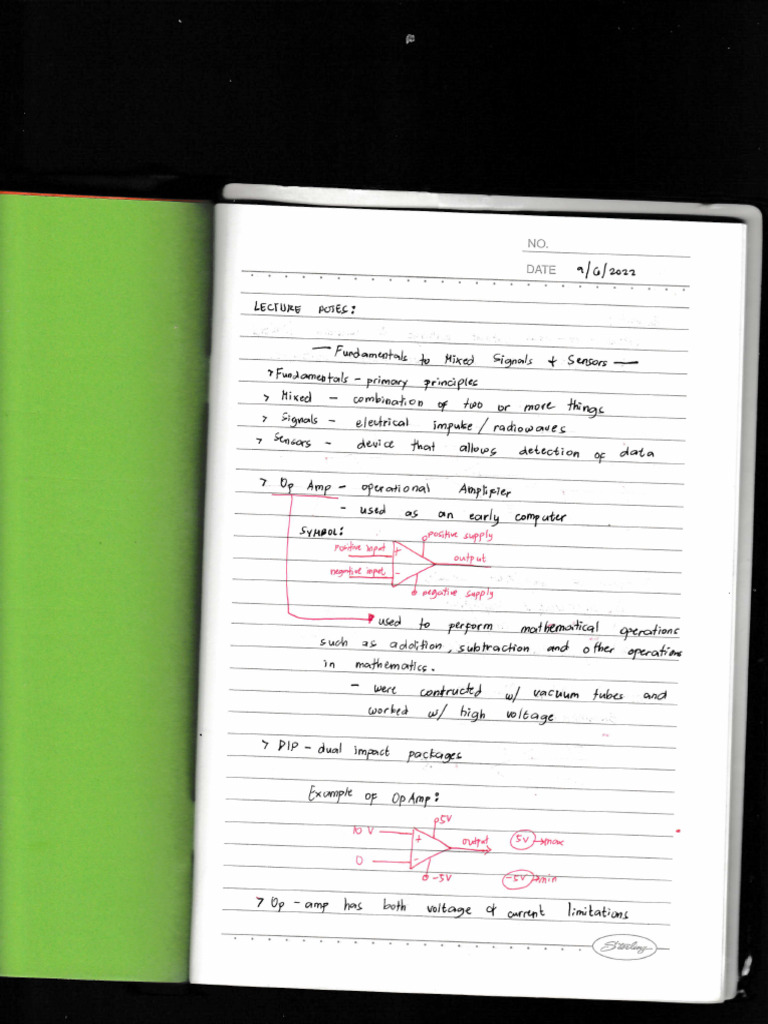 NO.
DATE 9/6/2022
LECTURE POTES:
— Fundamentals to Mixed Signals & Sensors —
> Fundamentals - primary principles
> Mixed - combination of two or more things
> Signals - electrical impulse / radiowaves
> Sensors - device that allows detection of data
> Op Amp - operational Amplifier
- used as an early computer
SYMBOL:
positive supply
positive input + output
negative input -
negative supply
used to perform mathematical operations
such as addition, subtraction and other operations
in mathematics.
- were contructed w/ vacuum tubes and
worked w/ high voltage
> DIP - dual impact packages
Example of Op Amp:
5V
10 V + output 5V → max
0 -
-5V -5V → min
> Op - amp has both voltage & current limitations
Sterling